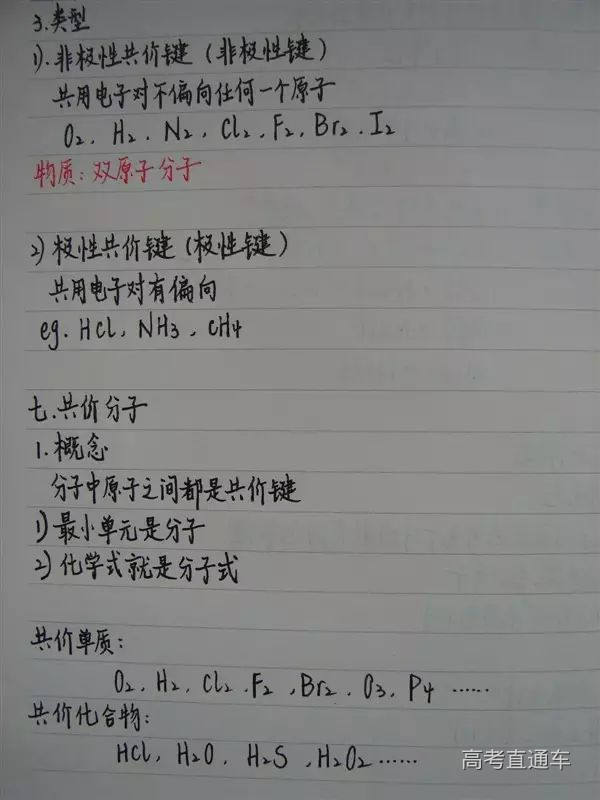 3.类型
1).非极性共价键（非极性键）
共用电子对不偏向任何一个原子
O₂、H₂、N₂、Cl₂、F₂、Br₂、I₂
物质：双原子分子
2)极性共价键（极性键）
共用电子对有偏向
eg. HCl、NH₃、CH₄
七.共价分子
1.概念
分子中原子之间都是共价键
1)最小单元是分子
2)化学式就是分子式
共价单质：
O₂、H₂、Cl₂、F₂、Br₂、O₃、P₄ ……
共价化合物：
HCl、H₂O、H₂S、H₂O₂……
高考直通车